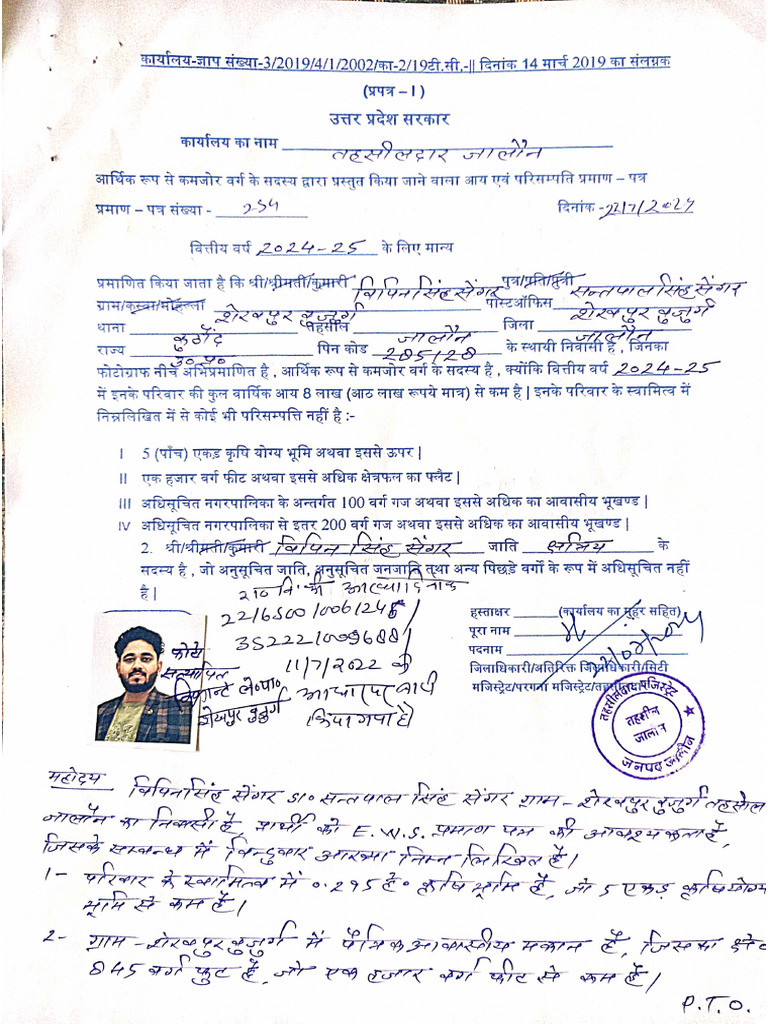 कार्यालय-ज्ञाप संख्या-3/2019/4/1/2002/का-2/19टी.सी.-|| दिनांक 14 मार्च 2019 का संलग्नक
(प्रपत्र – I )
उत्तर प्रदेश सरकार
कार्यालय का नाम तहसीलदार जालौन
आर्थिक रूप से कमजोर वर्ग के सदस्य द्वारा प्रस्तुत किया जाने वाला आय एवं परिसम्पति प्रमाण – पत्र
प्रमाण – पत्र संख्या - 254 दिनांक -
वित्तीय वर्ष 2024-25 के लिए मान्य
प्रमाणित किया जाता है कि श्री/श्रीमती/कुमारी विपिन सिंह सेंगर पुत्र/पति/पुत्री सन्तपाल सिंह सेंगर
ग्राम/कस्वा/मोहल्ला शेखपुर बुजुर्ग पोस्टऑफिस शेखपुर बुजुर्ग
थाना कुठौंद तहसील जालौन जिला जालौन
राज्य उ0 प्र0 पिन कोड 285128 के स्थायी निवासी है , जिनका
फोटोग्राफ नीचे अभिप्रमाणित है , आर्थिक रूप से कमजोर वर्ग के सदस्य है , क्योंकि वित्तीय वर्ष 2024-25
में इनके परिवार की कुल वार्षिक आय 8 लाख (आठ लाख रूपये मात्र) से कम है | इनके परिवार के स्वामित्व में
निम्नलिखित में से कोई भी परिसम्पत्ति नहीं है :-
I 5 (पाँच) एकड़ कृषि योग्य भूमि अथवा इससे ऊपर |
II एक हजार वर्ग फीट अथवा इससे अधिक क्षेत्रफल का फ्लैट |
III अधिसूचित नगरपालिका के अन्तर्गत 100 वर्ग गज अथवा इससे अधिक का आवासीय भूखण्ड |
IV अधिसूचित नगरपालिका से इतर 200 वर्ग गज अथवा इससे अधिक का आवासीय भूखण्ड |
2. श्री/श्रीमती/कुमारी विपिन सिंह सेंगर जाति क्षत्रिय के
सदस्य है , जो अनुसूचित जाति, अनुसूचित जनजाति तथा अन्य पिछड़े वर्गो के रूप में अधिसूचित नहीं
है |
रा0 नि0 की आख्या दिनांक
11/7/2022 के
आधार पर जारी
किया गया है
फोटो
सत्यापित
ले0पा0
शेखपुर बुजुर्ग
हस्ताक्षर (कार्यालय का मुहर सहित)
पूरा नाम
पदनाम
जिलाधिकारी/अतिरिक्त जिलाधिकारी/सिटी
मजिस्ट्रेट/परगना मजिस्ट्रेट/तहसीलदार
तहसील
जालौन
जनपद जालौन
महोदय
विपिन सिंह सेंगर S/० सन्तपाल सिंह सेंगर ग्राम- शेखपुर बुजुर्ग तहसील
जालौन का निवासी है, प्रार्थी को E.W.S. प्रमाण पत्र की आवश्यकता है,
जिसके सम्बन्ध में विन्दुवार आख्या निम्न लिखित है।
1- परिवार के स्वामित्व में 0.295 हे० कृषि भूमि है, जो 5 एकड़ कृषि योग्य
भूमि से कम है।
2- ग्राम- शेखपुर बुजुर्ग में पैत्रिक आवासीय मकान है, जिसका क्षे०
845 वर्ग फुट है, जो एक हजार वर्ग फीट से कम है।
P.T.O.